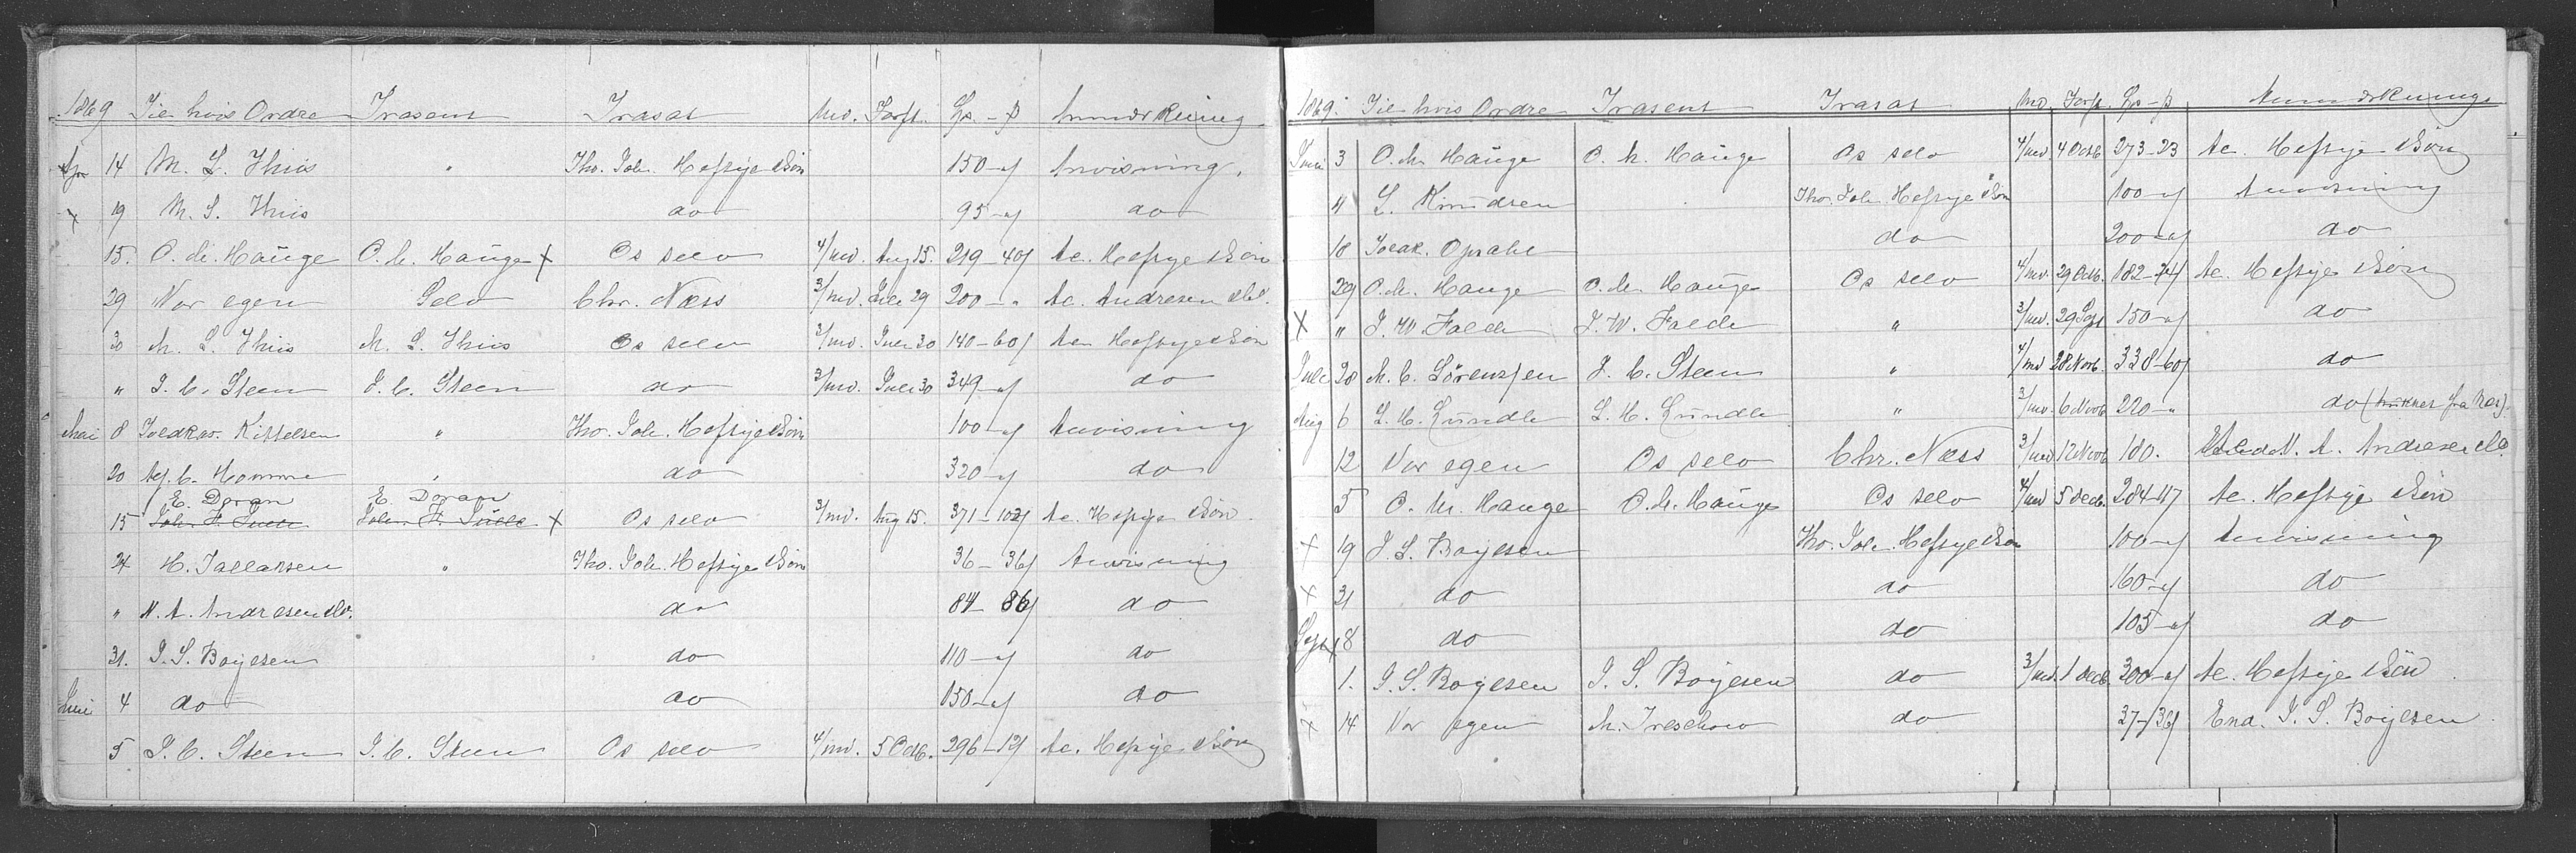 1869 Til hvis Ordre Trasent Trasat Md. Forft. Sp. - ß Anmærkning
Apr 14 M. S. Thiis " Tho. Joh. Heftye & Søn 150 - " Anvisning.
x 19 M. S. Thiis do 95 - " do
15. O. M. Hauge O. M. Hauge x Os selv 4/md. Aug 15. 219 - 40 Ac. Heftye & Søn
29 Vor egen Selv Chr. Næss 3/md. Juli 29 200 - " Ac. Andresen & Co.
30 M. S. Thiis M. S. Thiis Os selv 3/md. Juli 30 140 - 60 Ac. Heftye & Søn
" J. C. Steen J. C. Steen do 3/md. Juli 30 349 - " do
Mai 8 Kittelsen " Tho. Joh. Heftye & Søn 100 - " Anvisning
20 C. Homme " do 320 - " do
E. Doran E. Doran
15 Joh. F. Joh. F. x Os selv 3/md. Aug 15. 371 - Ac. Heftye & Søn
24 H. Tallaksen " Tho. Joh. Heftye & Søn 36 - 36 Anvisning
" N. A. Andresen & Co. do 84 - 86 do
31. J. S. Boyesen do 110 - " do
Juni 4 do do 150 - " do
5 J. C. Steen J. C. Steen Os selv 4/md. 5 Octb. 296 - 12 Ac. Heftye & Søn
1869. Til hvis Ordre Trasent Trasat Md. Forft. Sp - ß Anmærkning
Juni 3 O. M. Hauge O. M. Hauge Os selv 4/md 4 Octb 273 - 23 Ac. Heftye & Søn
4 S. Knudsen Tho. Joh. Heftye & Søn 100 - " Anvisning
18 Opsahl do 200 - " do
29 O. M. Hauge O. M. Hauge Os selv 4/md. 29 Octb. 182 - 24 Ac. Heftye & Søn
x " J. W. Falch J. W. Falch " 3/md. 29 Sept 150 - " do
Juli 28 M. C. Sörenssen J. C. Steen " 4/md 28 Novb. 338 - 60 do
Aug 6 S. H. Lundh S. H. Lundh " 3/md. 6 Novb 220 - " do ( fra Næs).
12 Vor egen Os selv Chr. Næss 3/md 12 Novb 180. N. A. Andresen & Co.
5 O. M. Hauge O. M. Hauge Os selv 4/md 5 Decb. 284 - 47 Ac. Heftye & Søn
x 19 J. S. Boyesen Tho. Joh. Heftye & Søn 100 - " Anvisning
x 31 do do 160 - " do
Sept x 8 do do 105 - " do
1. J. S. Boyesen J. S. Boyesen do 3/md. 1 Decb. 300 - " Ac. Heftye & Søn
x 14 Vor egen M. Treschow do 37 - 36 End. J. S. Boyesen